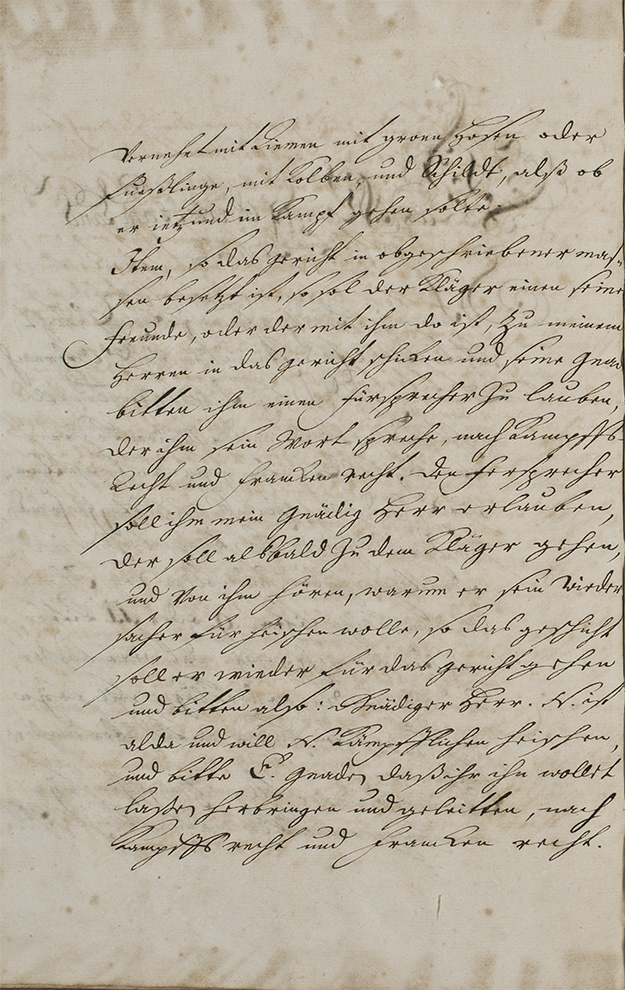 Vernehet mit Riemen mit groen Hosen oder
Fueßlinge, mit Kolben, und Schildt, alß ob
er ietzund im Kampf gehen solte.
Item, so das Gericht in obgeschriebener mas-
sen besetzt ist, so sol der Kläger einen seine
Freunde, oder der mit ihm do ist, zu meinem
Herren in das Gericht schicken und seine Gnad
bitten ihm einen fürsprecher zu lauben,
der ihm sein Wort spreche, nach Kampffs-
Recht und Francken recht. Den fersprecher
soll ihm mein Gnädig Herr erlauben,
der soll alsbald zu dem Kläger gehen,
und von ihm hören, warum er sein Wieder
sacher für heischen wolle, so das geschicht
soll er wieder für das gericht gehen
und bitten also: Gnädiger Herr. N. ist
alda und will N. Kämpfflichen heischen,
und bitte E. Gnaden daß ihr ihn wollet
laßen herbringen und geleitten, nach
Kampffs recht und francken recht.